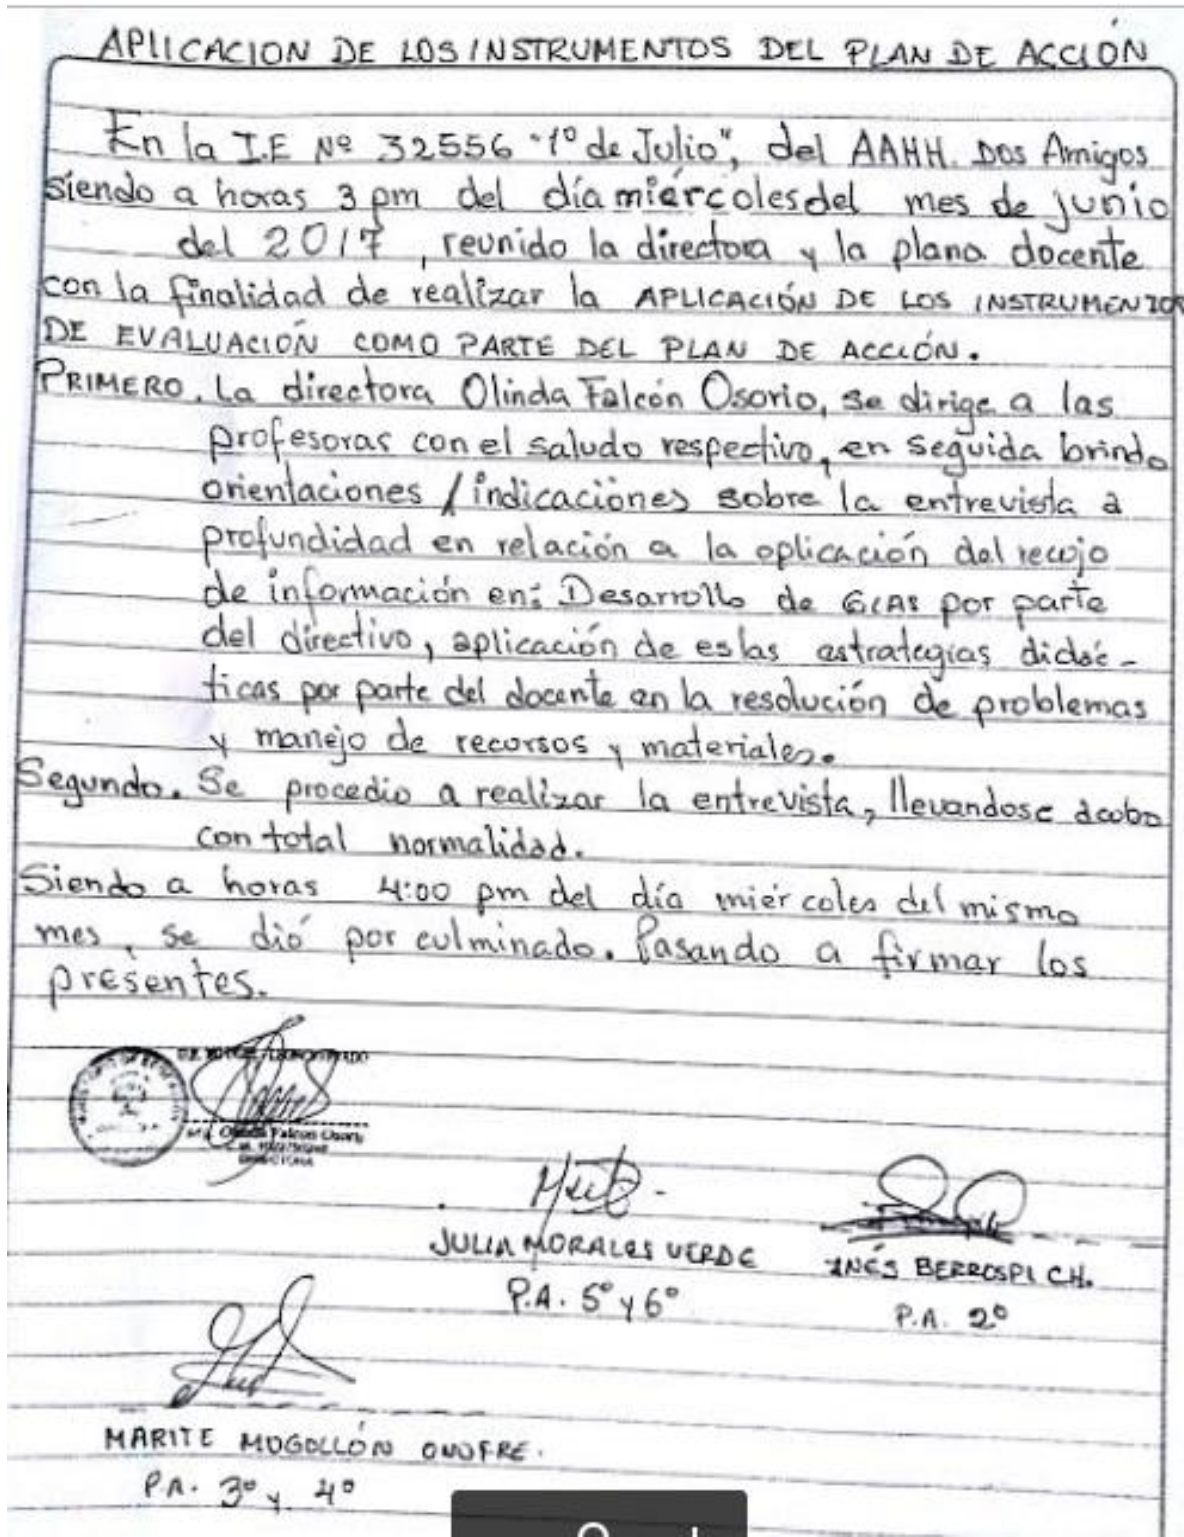 APLICACION DE LOS INSTRUMENTOS DEL PLAN DE ACCIÓN
En la I.E Nº 32556 "1º de Julio", del AAHH. Dos Amigos
siendo a horas 3 pm del día miércoles del mes de junio
del 2017, reunido la directora y la plana docente
con la finalidad de realizar la APLICACIÓN DE LOS INSTRUMENTOS
DE EVALUACIÓN COMO PARTE DEL PLAN DE ACCIÓN.
PRIMERO. La directora Olinda Falcón Osorio, se dirige a las
profesoras con el saludo respectivo, en seguida brindo
orientaciones / indicaciones sobre la entrevista a
profundidad en relación a la aplicación del recojo
de información en: Desarrollo de GIAS por parte
del directivo, aplicación de estas estrategias didác-
ticas por parte del docente en la resolución de problemas
y manejo de recursos y materiales.
Segundo. Se procedio a realizar la entrevista, llevandose acabo
con total normalidad.
Siendo a horas 4:00 pm del día miércoles del mismo
mes, se dió por culminado. Pasando a firmar los
presentes.
Olinda Falcon Osorio
DIRECTORA
JULIA MORALES VERDE
P.A. 5º y 6º
INÉS BERROSPI CH.
P.A. 2º
MARITE MOGOLLÓN ONOFRE.
P.A. 3º y 4º